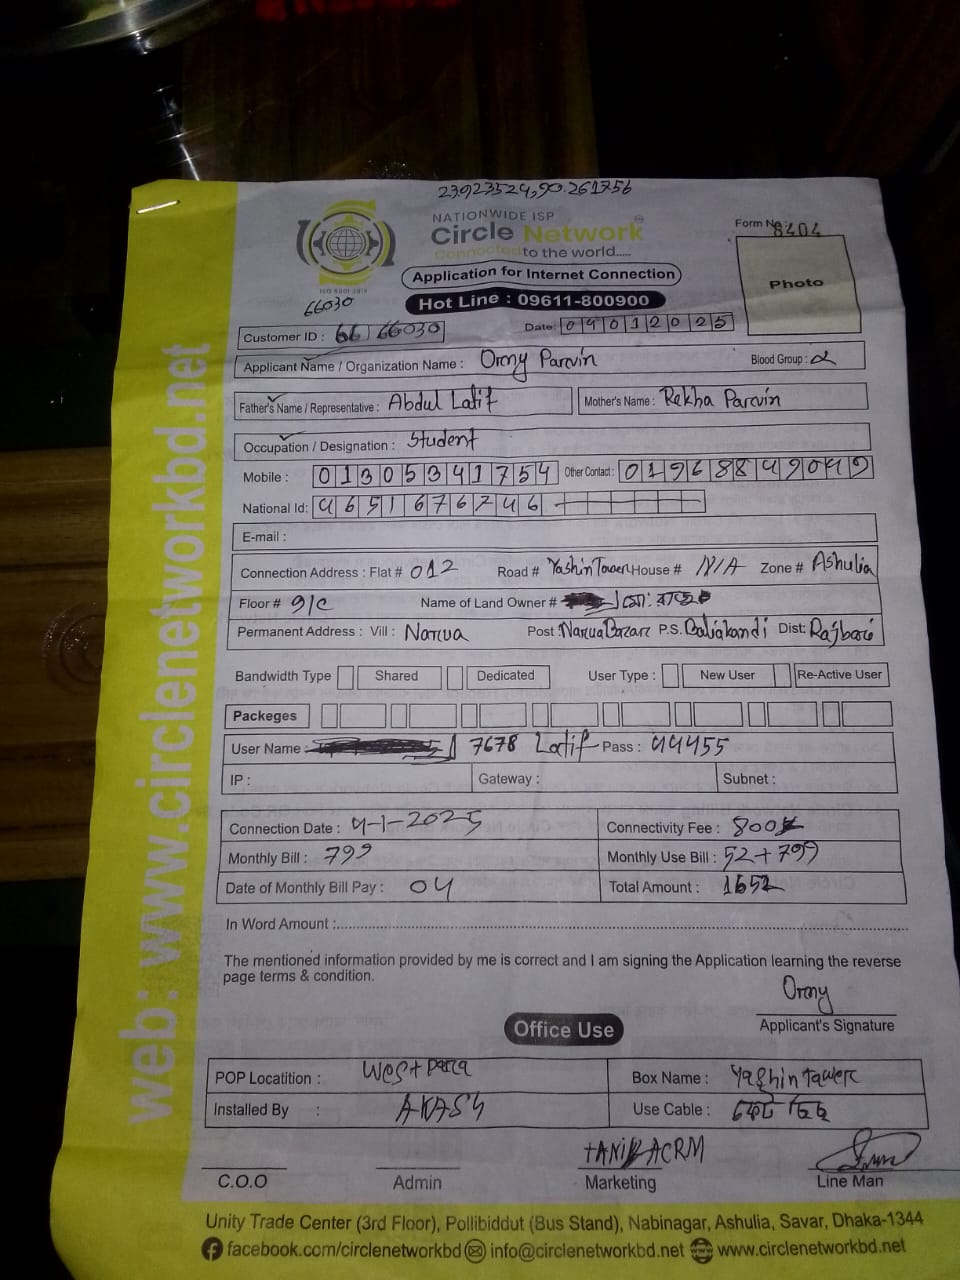 23.923524,90.261756
NATIONWIDE ISP
Circle Network
Connected to the world.....
Form No: 8404
Photo
Application for Internet Connection
ISO 9001:2015
66030
Hot Line : 09611-800900
Customer ID : 66030
Date 04012025
Applicant Name / Organization Name : Ormy Parvin Blood Group :
Father's Name / Representative : Abdul Latif Mother's Name : Rekha Parvin
Occupation / Designation : Student
Mobile : 01305341754 Other Contact : 01968849049
National Id: 4651676746
E-mail :
Connection Address : Flat # 012 Road # Yashin Tower House # N/A Zone # Ashulia
Floor # 9/c Name of Land Owner # মো:
Permanent Address : Vill : Narua Post: Narua Bazar P.S. Baliakandi Dist: Rajbari
Bandwidth Type Shared Dedicated User Type : New User Re-Active User
Packeges
User Name : 7678 Latif Pass : 44455
IP : Gateway : Subnet :
Connection Date : 4-1-2025 Connectivity Fee : 800
Monthly Bill : 799 Monthly Use Bill : 52+799
Date of Monthly Bill Pay : 04 Total Amount : 1652
In Word Amount :
The mentioned information provided by me is correct and I am signing the Application learning the reverse
page terms & condition.
Ormy
Applicant's Signature
Office Use
POP Locatition : West Para Box Name : Yashin Tawer
Installed By : AKASH Use Cable :
C.O.O Admin Marketing Line Man
Unity Trade Center (3rd Floor), Pollibiddut (Bus Stand), Nabinagar, Ashulia, Savar, Dhaka-1344
facebook.com/circlenetworkbd info@circlenetworkbd.net www.circlenetworkbd.net
web: www.circlenetworkbd.net